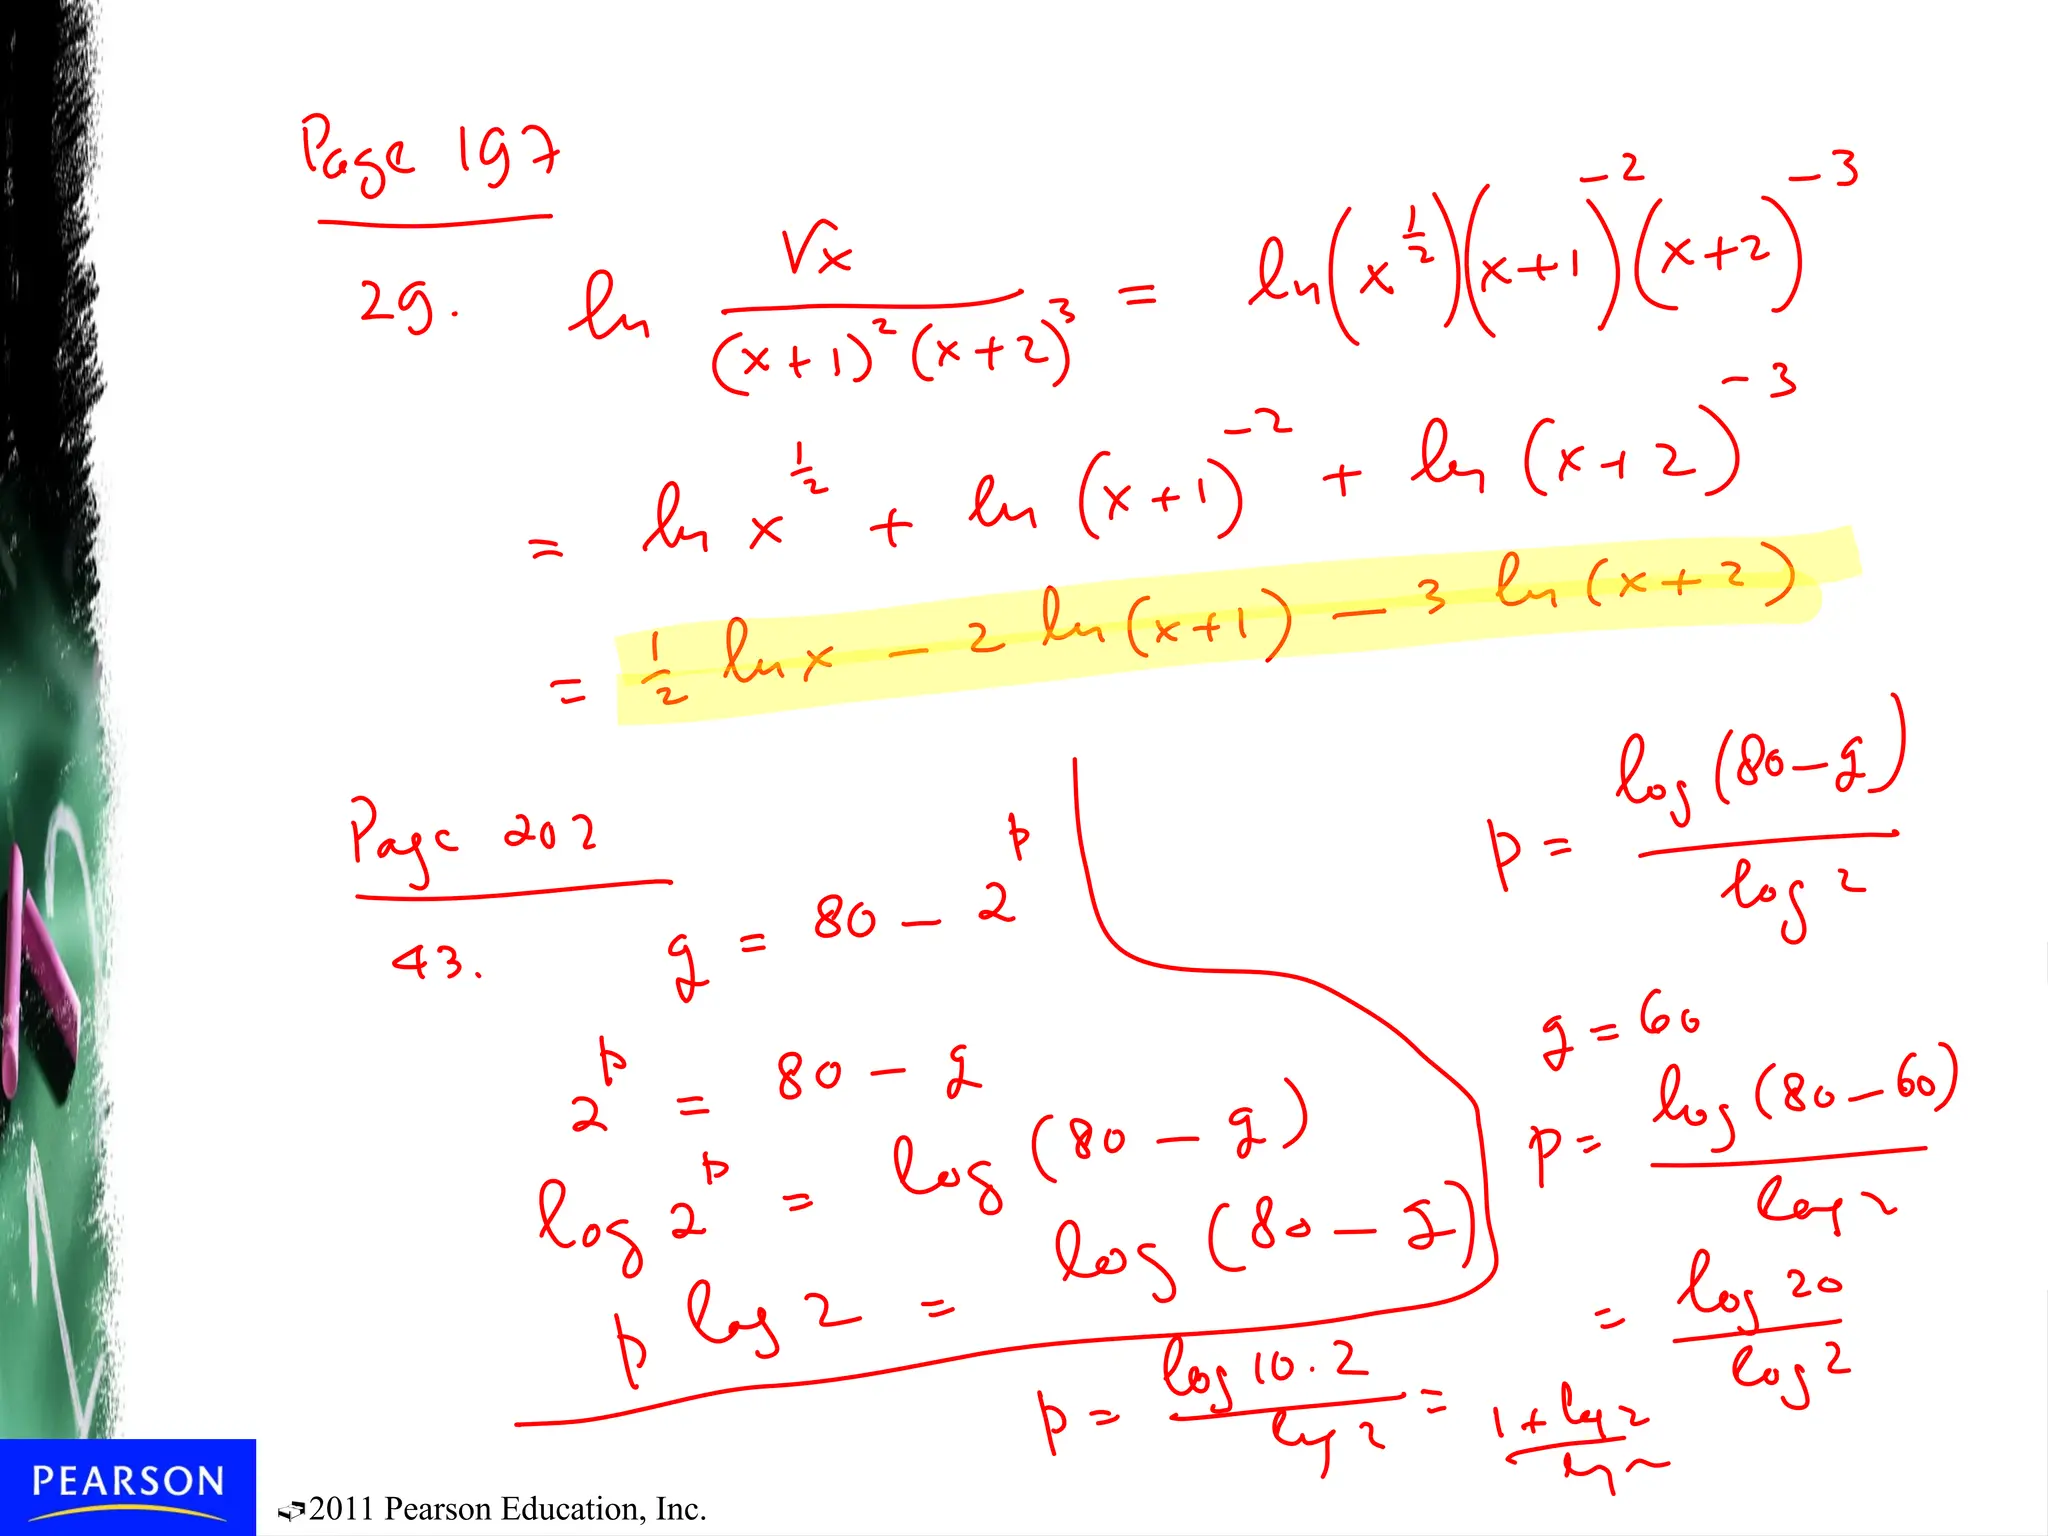 Page 197
29. ln √x / (x+1)² (x+2)³ = ln(x^½)(x+1)^-2 (x+2)^-3
= ln x^½ + ln (x+1)^-2 + ln (x+2)^-3
= ½ ln x - 2 ln(x+1) - 3 ln(x+2)
Page 202
43. q = 80 - 2^p
2^p = 80 - q
log 2^p = log (80 - q)
p log 2 = log (80 - q)
p = log (80-q) / log 2
q = 60
p = log (80-60) / log 2
= log 20 / log 2
p = log 10·2 / log 2 = 1 + log 2 / log 2
PEARSON
2011 Pearson Education, Inc.